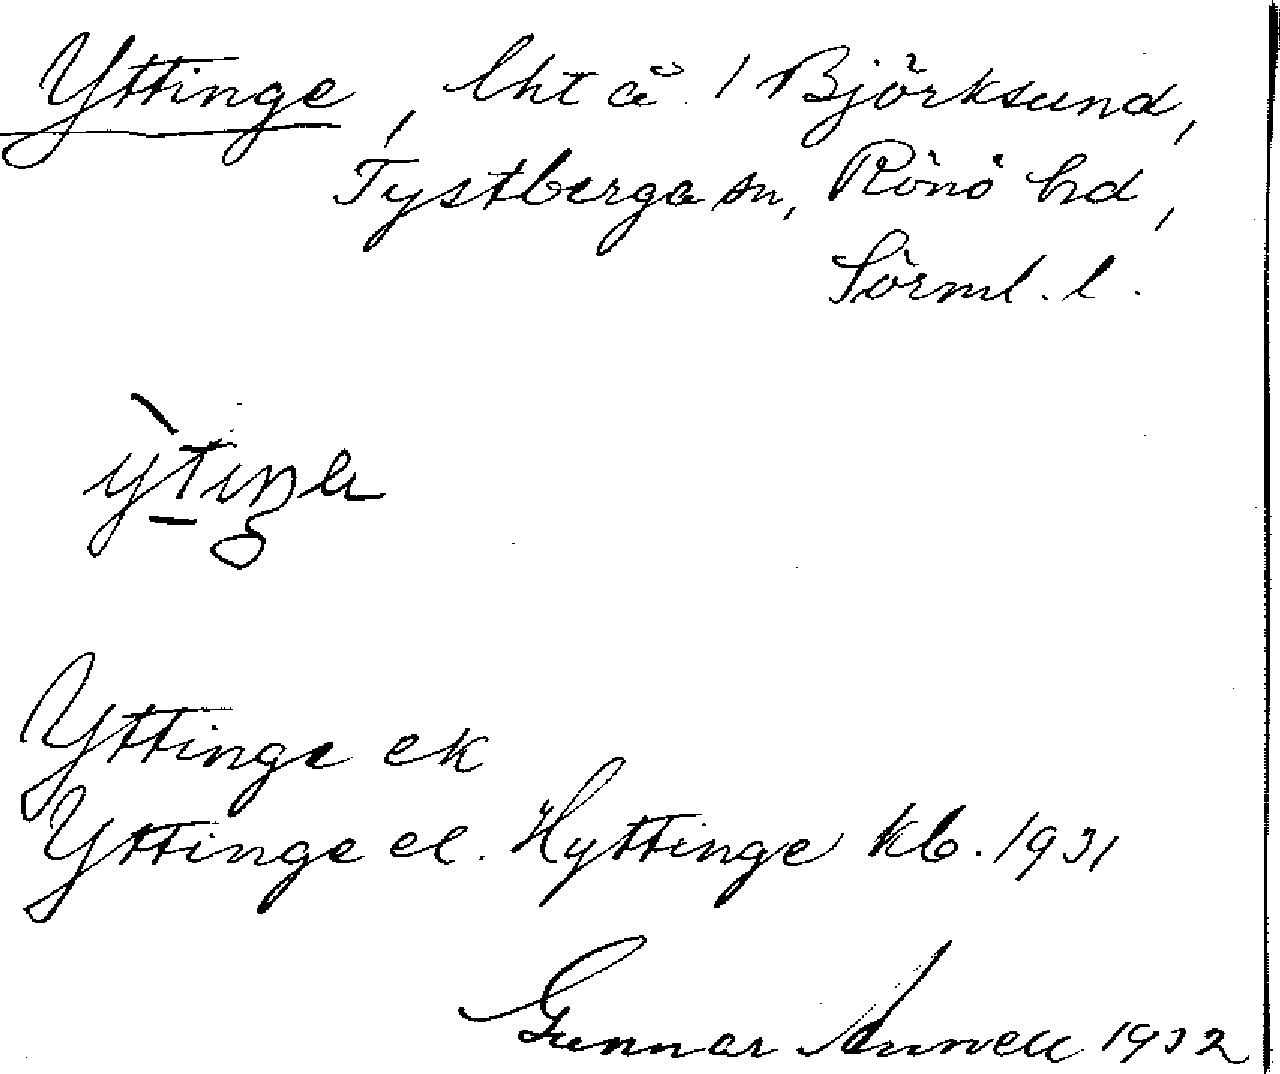 Yttinge, lht å / Björksund,
Tystberga sn, Rönö hd,
Sörml. l.
Yttinge ek
Yttinge el. Hyttinge kb. 1931
Gunnar 1932